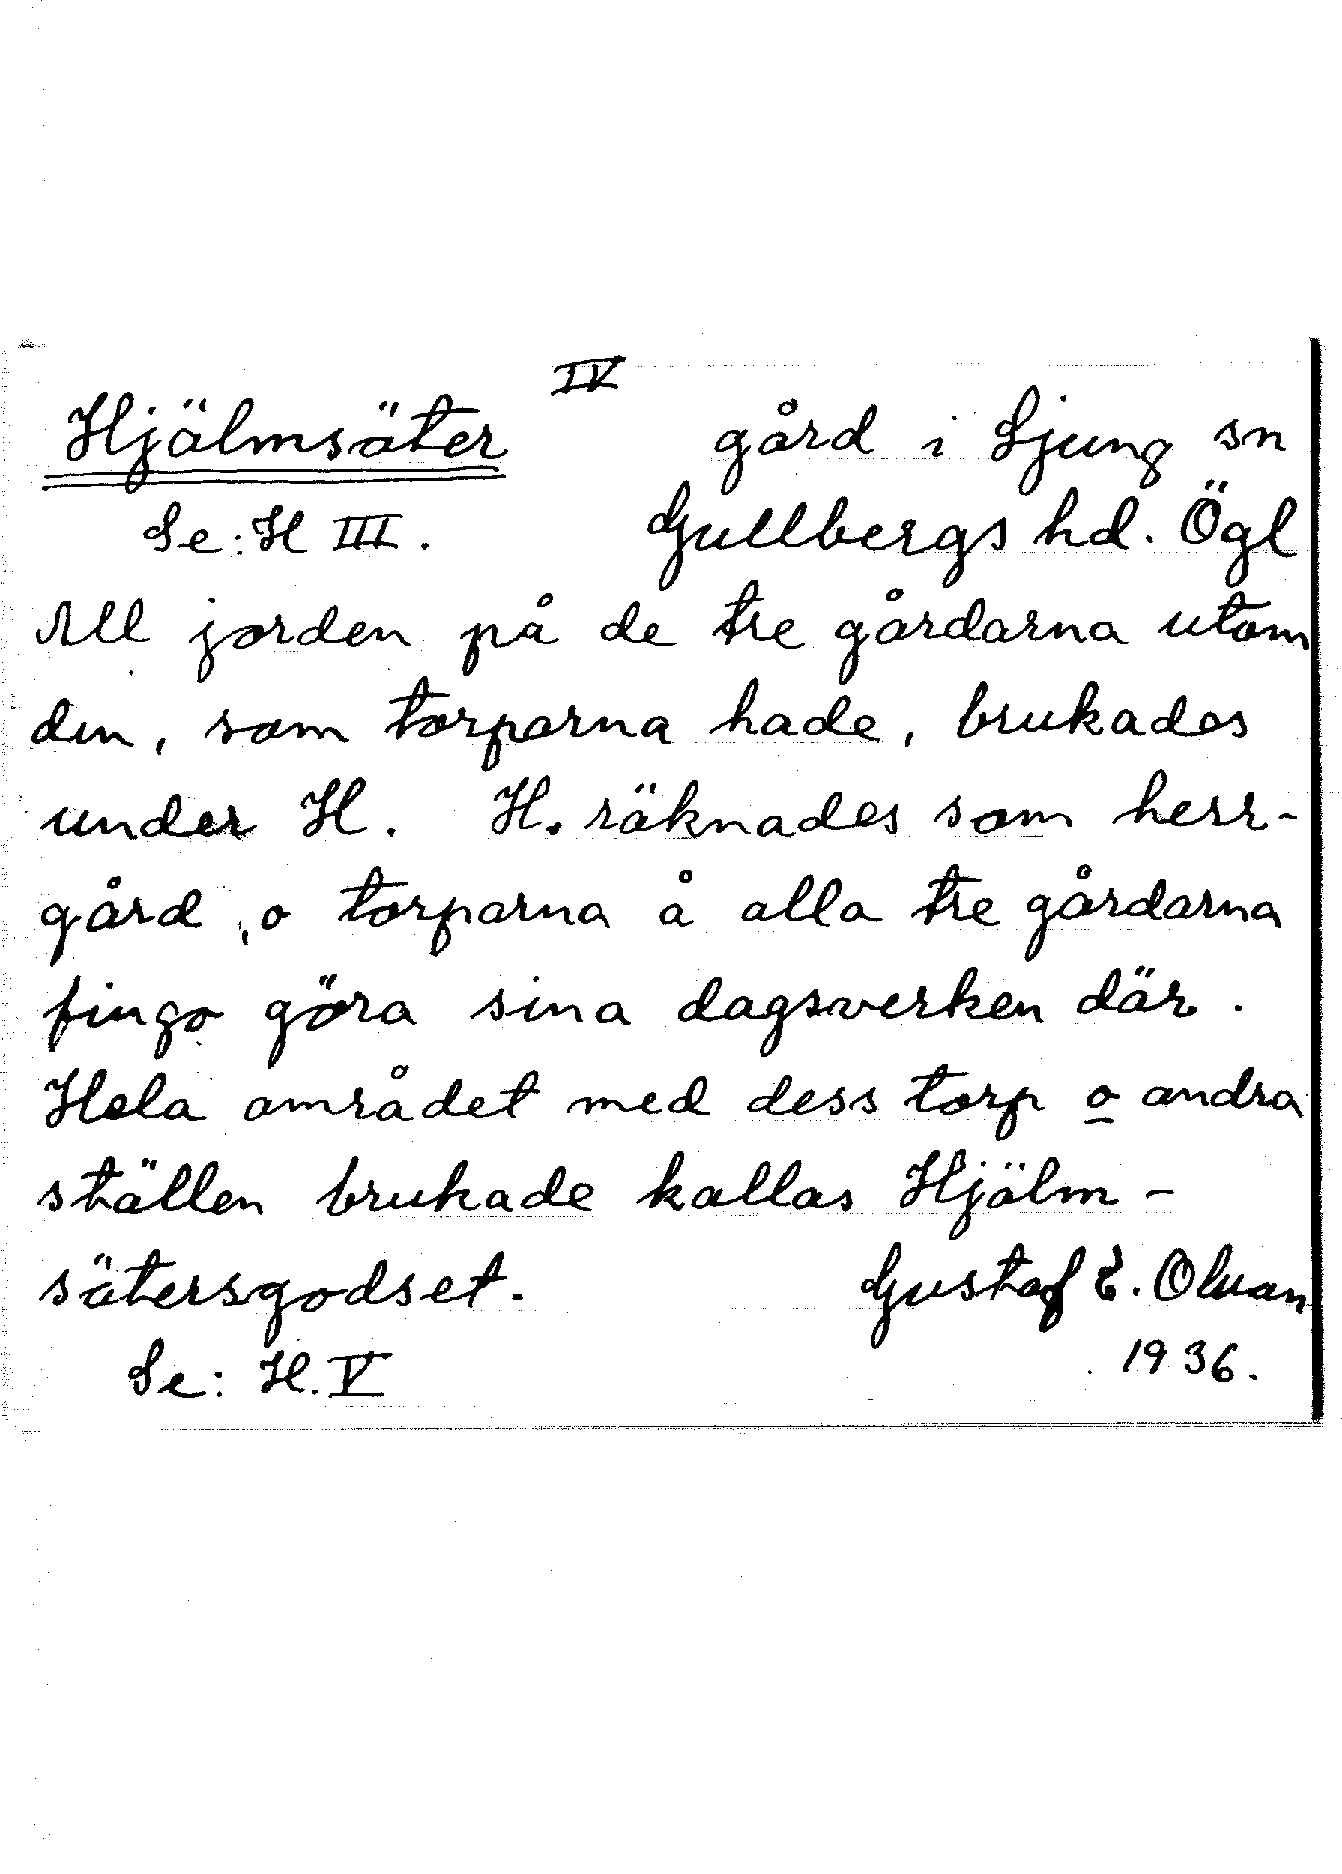 IV
Hjälmsäter gård i Ljung sn
Se: H III. Gullbergs hd. Ögl
All jorden på de tre gårdarna utom
den, som torparna hade, brukades
under H. H. räknades som herr-
gård, o torparna å alla tre gårdarna
fingo göra sina dagsverken där.
Hela området med dess torp o andra
ställen brukade kallas Hjälm-
sätersgodset. Gustaf E. Olvan
Se: H. V 1936.